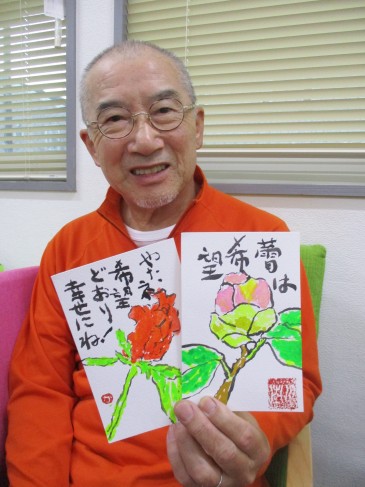 蕾は
希
望
やったネ
希望
どおり!
幸せにね!